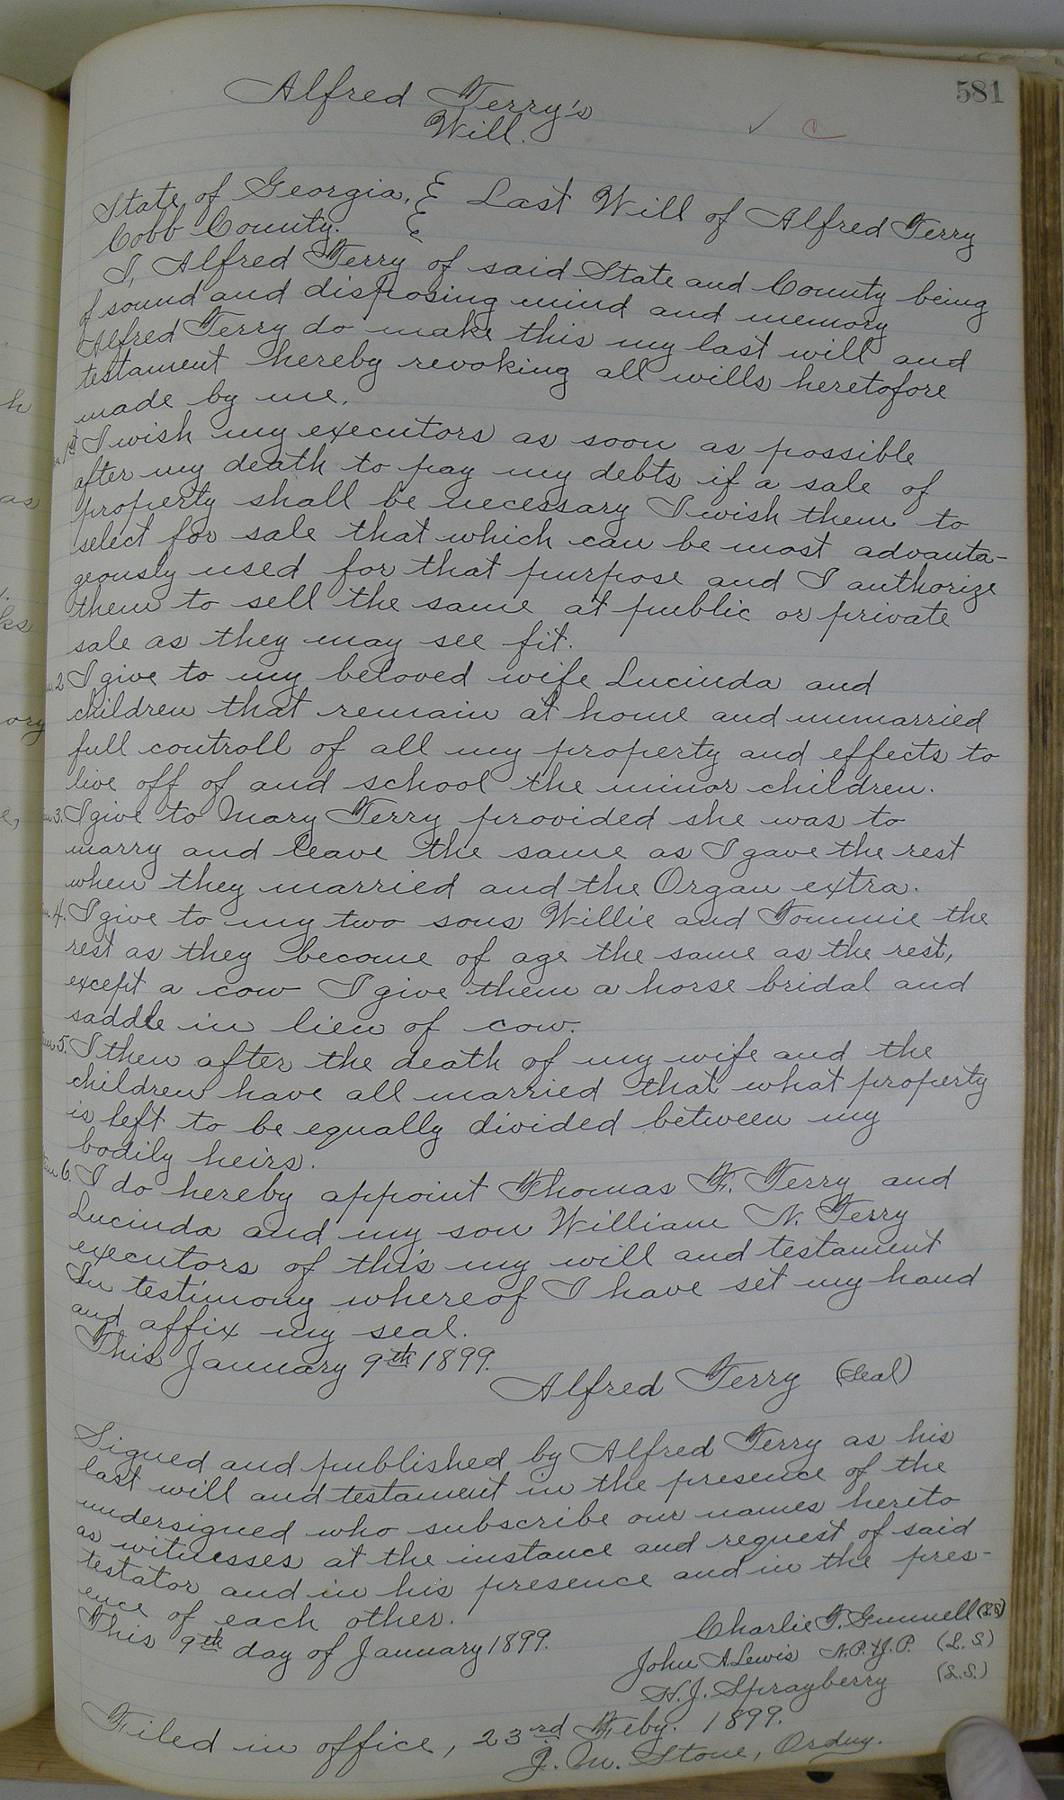 581
Alfred Terry's
Will.
State of Georgia, } Last Will of Alfred Terry
Cobb County. }
I, Alfred Terry of said State and County being
of sound and disposing mind and memory
Alfred Terry do make this my last will and
testament hereby revoking all wills heretofore
made by me.
1st I wish my executors as soon as possible
after my death to pay my debts if a sale of
property shall be necessary I wish them to
select for sale that which can be most advanta-
geously used for that purpose and I authorize
them to sell the same at public or private
sale as they may see fit.
2 I give to my beloved wife Lucinda and
children that remain at home and unmarried
full controll of all my property and effects to
live off of and school the minor children.
3. I give to Mary Terry provided she was to
marry and leave the same as I gave the rest
when they married and the Organ extra.
4. I give to my two sons Willie and Tommie the
rest as they become of age the same as the rest,
except a cow I give them a horse bridal and
saddle in lieu of cow.
5. I then after the death of my wife and the
children have all married that what property
is left to be equally divided between my
bodily heirs.
6. I do hereby appoint Thomas F. Terry and
Lucinda and my son William N. Terry
executors of this my will and testament
In testimony whereof I have set my hand
and affix my seal.
This January 9th 1899.
Alfred Terry (Seal)
Signed and published by Alfred Terry as his
last will and testament in the presence of the
undersigned who subscribe our names hereto
as witnesses at the instance and request of said
testator and in his presence and in the pres-
ence of each other.
This 9th day of January 1899.
Charlie T. Gunnell (L.S)
John A Lewis N.P. & J.P. (L.S)
H.J. Sprayberry (L.S.)
Filed in office, 23rd Feby. 1899.
J. M. Stone, Ordny.